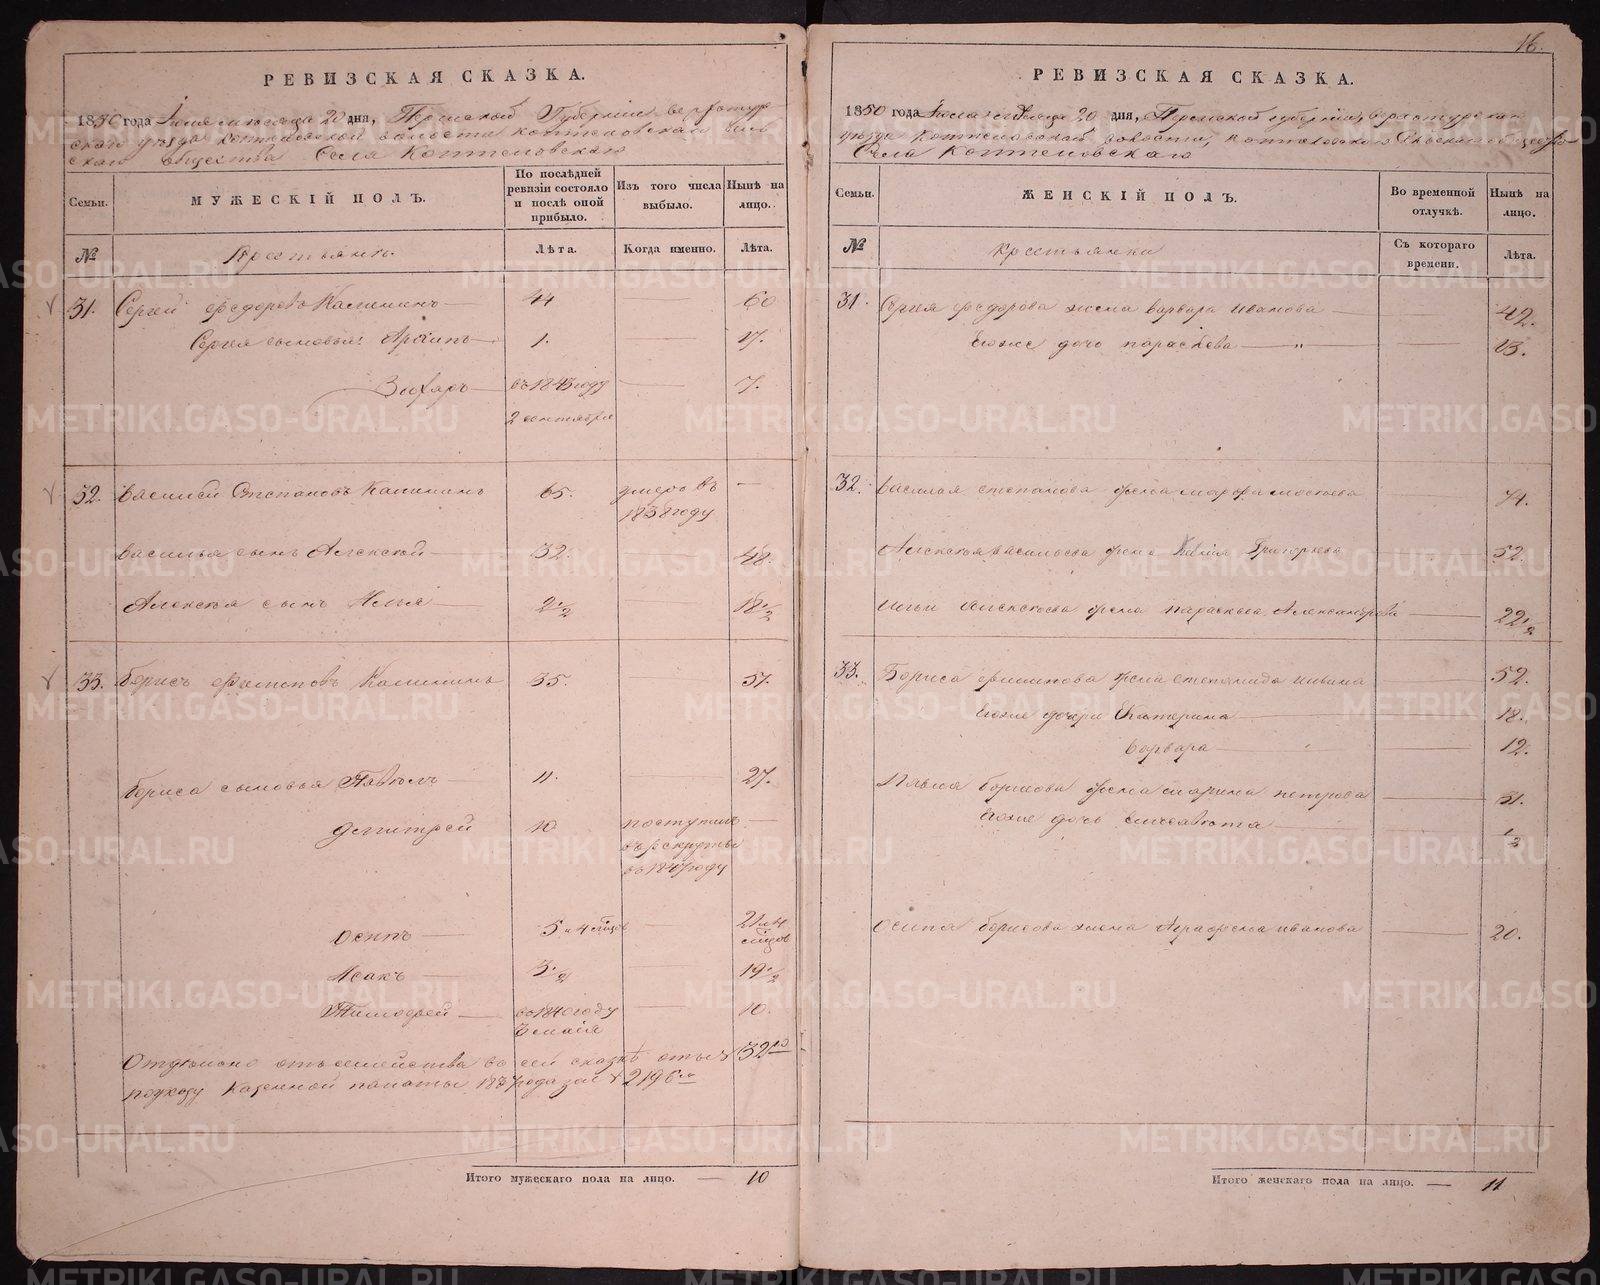 РЕВИЗСКАЯ СКАЗКА.
1850 года Июля месяца 20 дня, Пермской Губернии Верхотур-
скаго уезда Коптеловской волости Коптеловскаго Сель-
скаго общества Села Коптеловскаго
Семьи. МУЖЕСКІЙ ПОЛЪ. По послѣдней ревизіи состояло и послѣ оной прибыло. Изъ того числа выбыло. Нынѣ на лицо.
№ Крестьянъ. Лѣта. Когда именно. Лѣта.
31. Сергей Федоровъ Калининъ 44 60
Сергея сыновья: Архипъ 1. 17.
Захаръ въ 1843 году 7.
2 сентября
32. Василий Степановъ Калининъ 65. умеръ въ —
1838 году
Василья сынъ Алексей 32. 48.
Алексея сынъ Илья 2 1/2 18 1/2
33. Борисъ Филиповъ Калининъ 35. 51.
Бориса сыновья Павелъ 11. 27.
Дмитрей 10 поступилъ —
въ рекруты
въ 1847 году
Осипъ 5 и 4 21 и 4
Исакъ 3 1/2 19 1/2
Тимофей въ 1840 году 10.
мая
семейства в сей сказке 32
Казенной палаты 1837 года за № 2196
Итого мужескаго пола на лицо. — 10
16.
РЕВИЗСКАЯ СКАЗКА.
1850 года Июля месяца 20 дня, Пермской губернии, Верхотурскаго
уезда Коптеловской волости, Коптеловскаго Сельскаго общества
Села Коптеловскаго
Семьи. ЖЕНСКІЙ ПОЛЪ. Во временной отлучкѣ. Нынѣ на лицо.
№ Крестьянки Съ котораго времени. Лѣта.
31. Сергея Федорова жена Варвара Иванова 42.
Ево же дочь Параскева — „ 13.
32. Василья Степанова жена Марфа 71.
Алексея Васильева жена Григорьева 52.
Ильи Алексеева жена Параскева Александрова 22 1/2
33. Бориса Филипова жена Степанида 52.
Ево же дочери Катерина 18.
Варвара 12.
Павла Борисова жена Марина Петрова 31.
Ево же дочь Елисавета 1/2
Осипа Борисова жена Аграфена Иванова 20.
Итого женскаго пола на лицо. — 11
METRIKI.GASO-URAL.RU